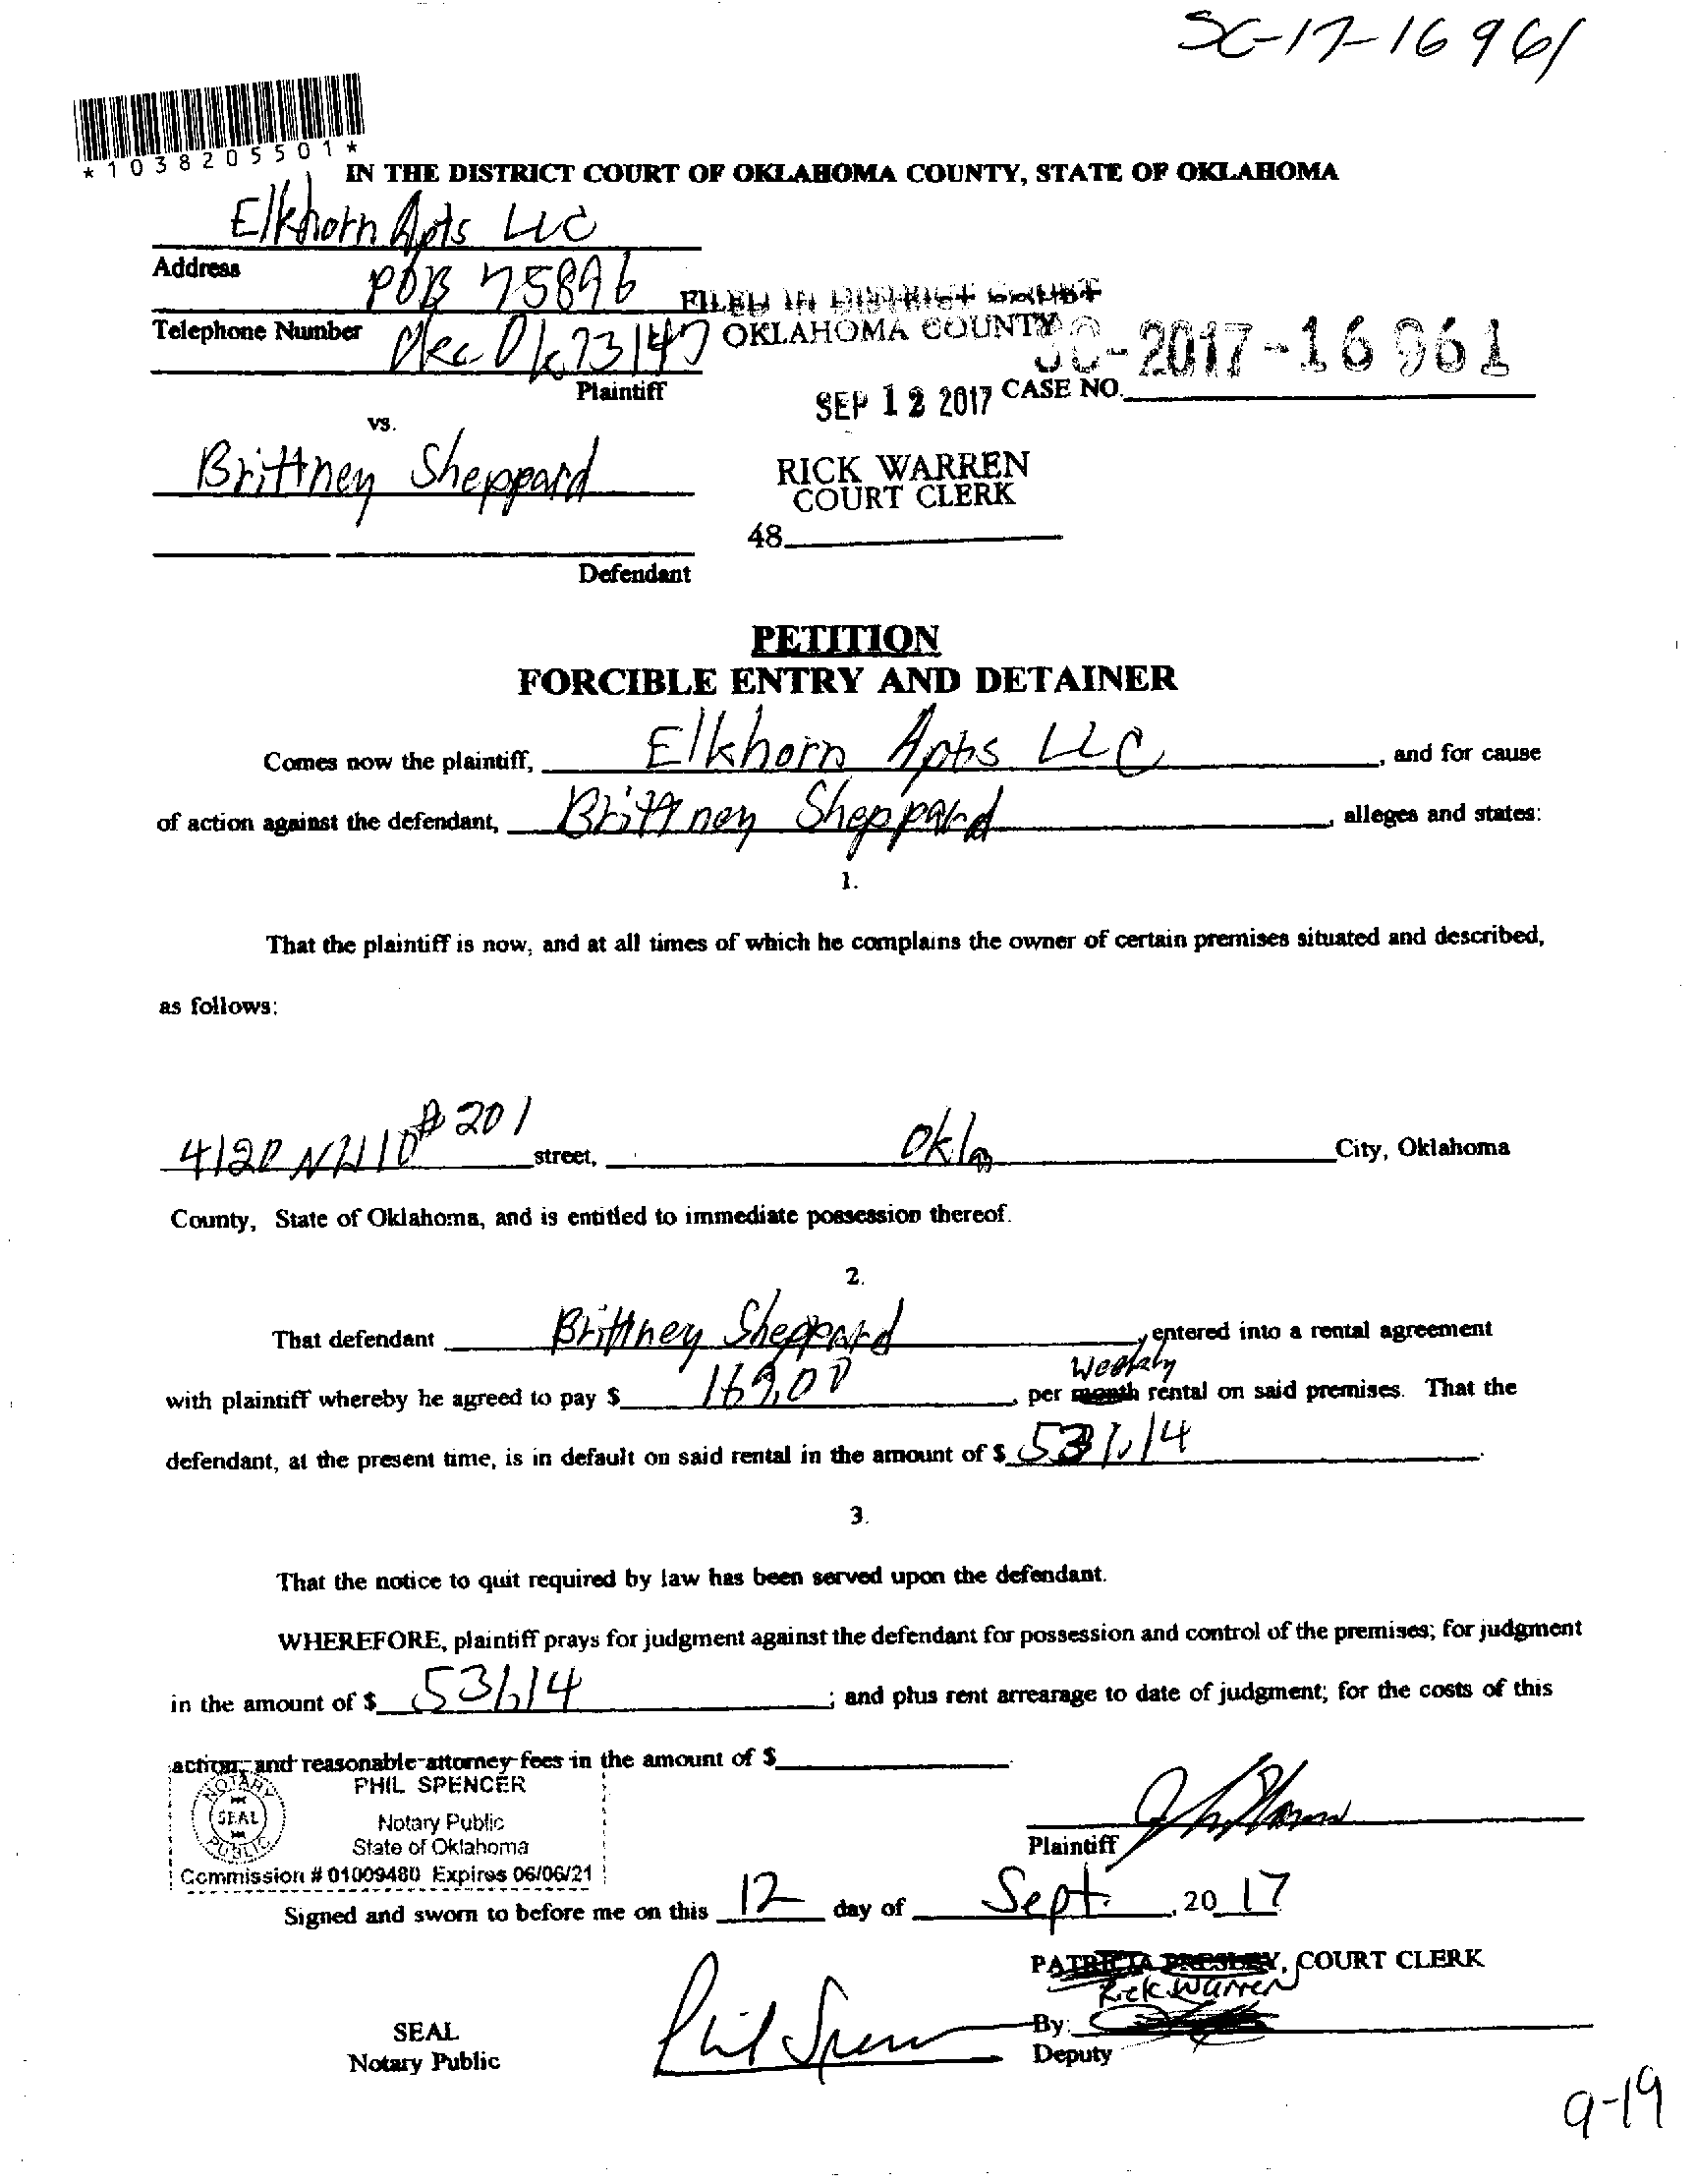 SC-17-16961
*1038205501*
IN THE DISTRICT COURT OF OKLAHOMA COUNTY, STATE OF OKLAHOMA
Elkhorn Apts LLC
Address
POB 75896
FILED IN DISTRICT COURT
Telephone Number
Okc Ok 73147
OKLAHOMA COUNTY
SC-2017-16961
Plaintiff
SEP 12 2017
CASE NO.
vs.
Brittney Sheppard
RICK WARREN
COURT CLERK
48
Defendant
PETITION
FORCIBLE ENTRY AND DETAINER
Comes now the plaintiff, Elkhorn Apts LLC, and for cause
of action against the defendant, Brittney Sheppard, alleges and states:
1.
That the plaintiff is now, and at all times of which he complains the owner of certain premises situated and described,
as follows:
4120 NW 10 #201 street, Okla City, Oklahoma
County, State of Oklahoma, and is entitled to immediate possession thereof.
2.
That defendant Brittney Sheppard, entered into a rental agreement
Weekly
with plaintiff whereby he agreed to pay $ 169.00, per month rental on said premises. That the
defendant, at the present time, is in default on said rental in the amount of $ 531.14.
3.
That the notice to quit required by law has been served upon the defendant.
WHEREFORE, plaintiff prays for judgment against the defendant for possession and control of the premises; for judgment
in the amount of $ 531.14; and plus rent arrearage to date of judgment; for the costs of this
action, and reasonable attorney fees in the amount of $
NOTARY PUBLIC
SEAL
PHIL SPENCER
Notary Public
State of Oklahoma
Commission # 01009480 Expires 06/06/21
Plaintiff
Signed and sworn to before me on this 12 day of Sept., 2017
PATRICIA PRESLEY, COURT CLERK
Rick Warren
Phil Spencer
By:
SEAL
Deputy
Notary Public
9-19